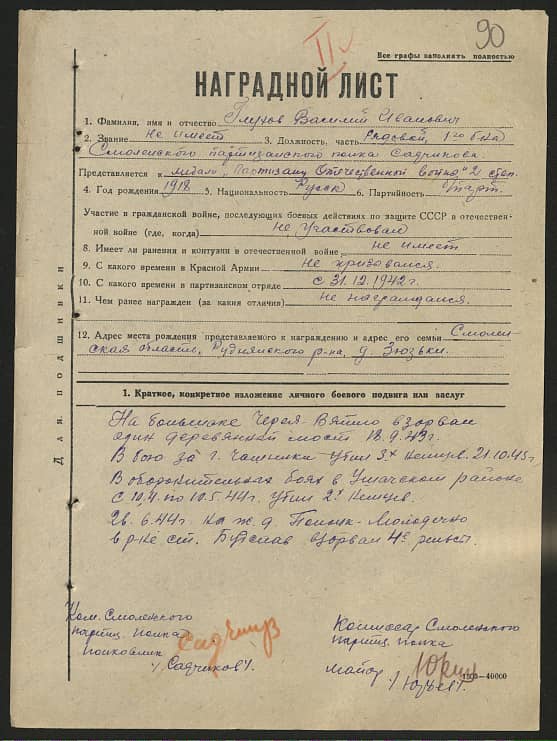 90
II
Все графы заполнять полностью
НАГРАДНОЙ ЛИСТ
1. Фамилия, имя и отчество Глухов Василий Иванович
2. Звание не имеет 3. Должность, часть рядовой, 1го б-на
Смоленского партизанского полка Садчикова.
Представляется к медали "Партизану Отечественной войны" 2 степ.
4. Год рождения 1918 5. Национальность Русск 6. Партийность
Участие в гражданской войне, последующих боевых действиях по защите СССР в отечествен-
ной войне (где, когда) не участвовал
8. Имеет ли ранения и контузии в отечественной войне не имеет
9. С какого времени в Красной Армии не призывался.
10. С какого времени в партизанском отряде с 31.12.1942г.
11. Чем ранее награжден (за какия отличия) не награждался.
12. Адрес места рождения представляемого к награждению и адрес его семьи Смолен-
ская область, Руднянского р-на, д. Зюзьки.
Для подшивки
1. Краткое, конкретное изложение личного боевого подвига или заслуг
На большаке Черея-Вятно взорвал
один деревянный мост 18.9.43г.
В бою за г. Чашники убил 3х немцев. 21.10.43г.
В оборонительных боях в Ушачском районе
с 10.4. по 10.5.44г. убил 2х немцев.
26.6.44г. на ж.д. Полоцк-Молодечно
в р-не ст. Будслав взорвал 4е рельсы.
Ком. Смоленского
партиз. полка
полковник
Садчиков
/Садчиков/.
Комиссар Смоленского
партиз. полка
майор
/Юрьев/.
—40000